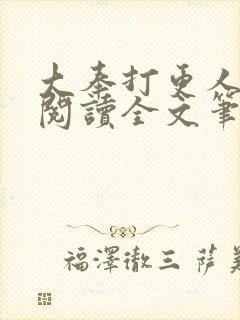 大奉打更人
閱讀全文筆
福澤徹三 薩